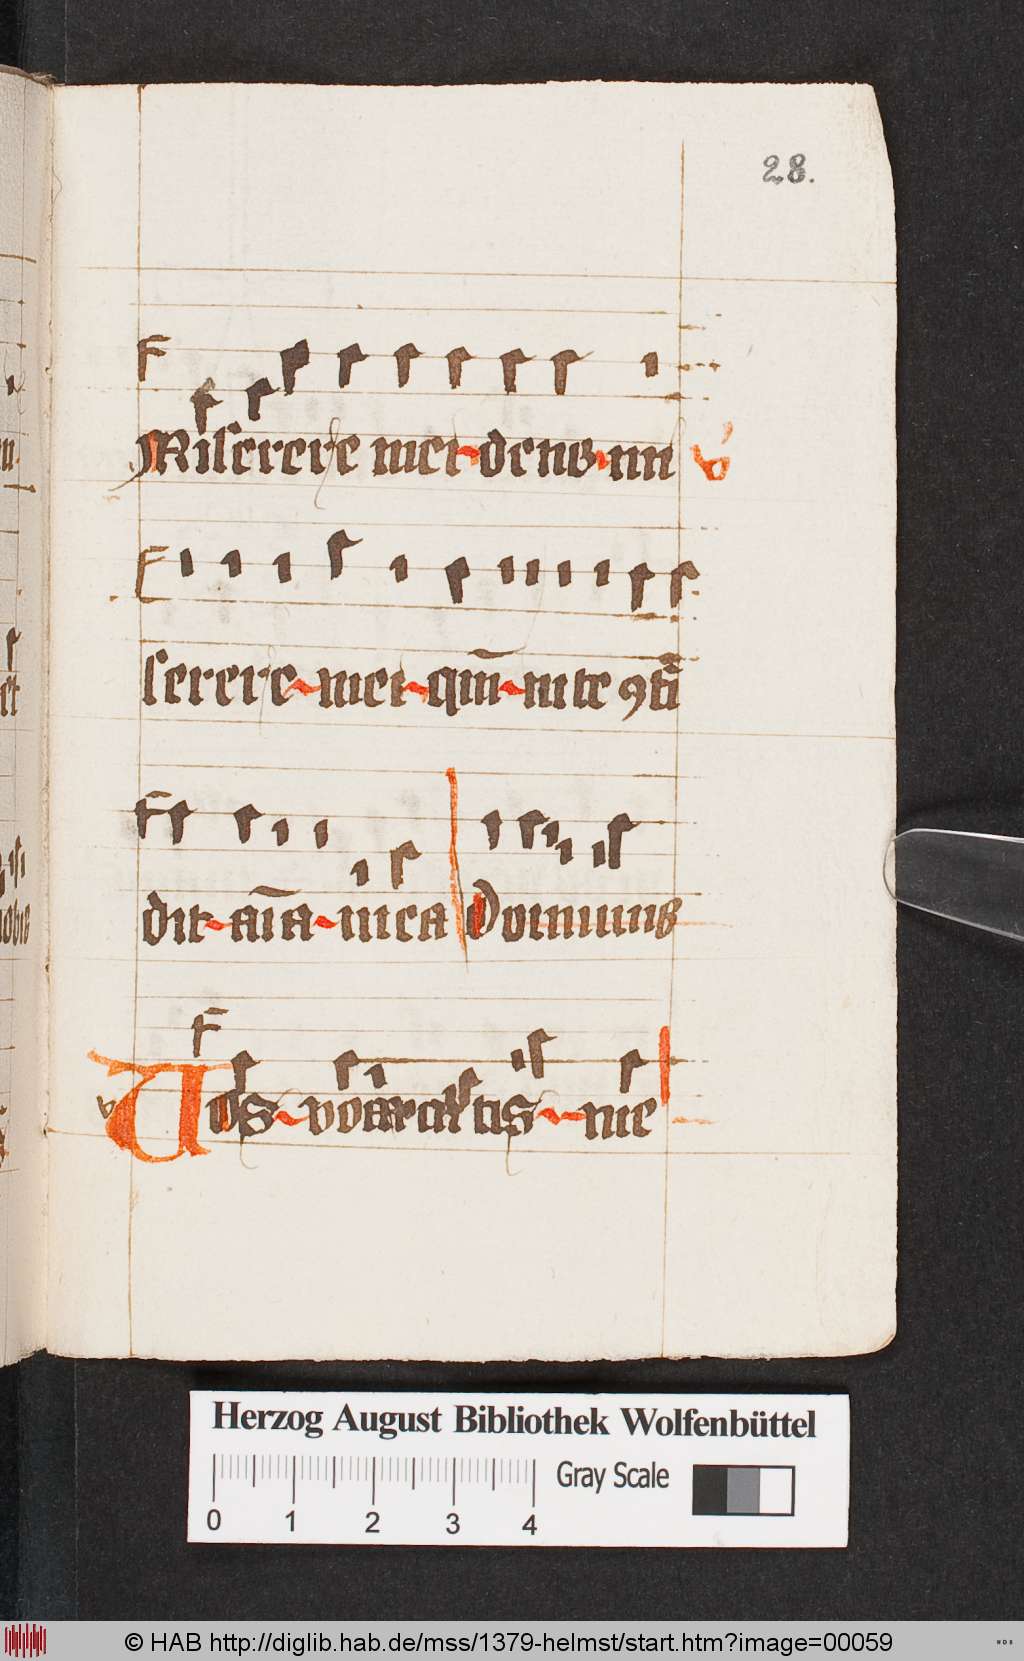 28.
Miserere mei deus mi
serere mei qm̄ in te ꝯfi
dit aīa mea Dominus
Vos vocatis me
Herzog August Bibliothek Wolfenbüttel
Gray Scale
0 1 2 3 4
© HAB http://diglib.hab.de/mss/1379-helmst/start.htm?image=00059